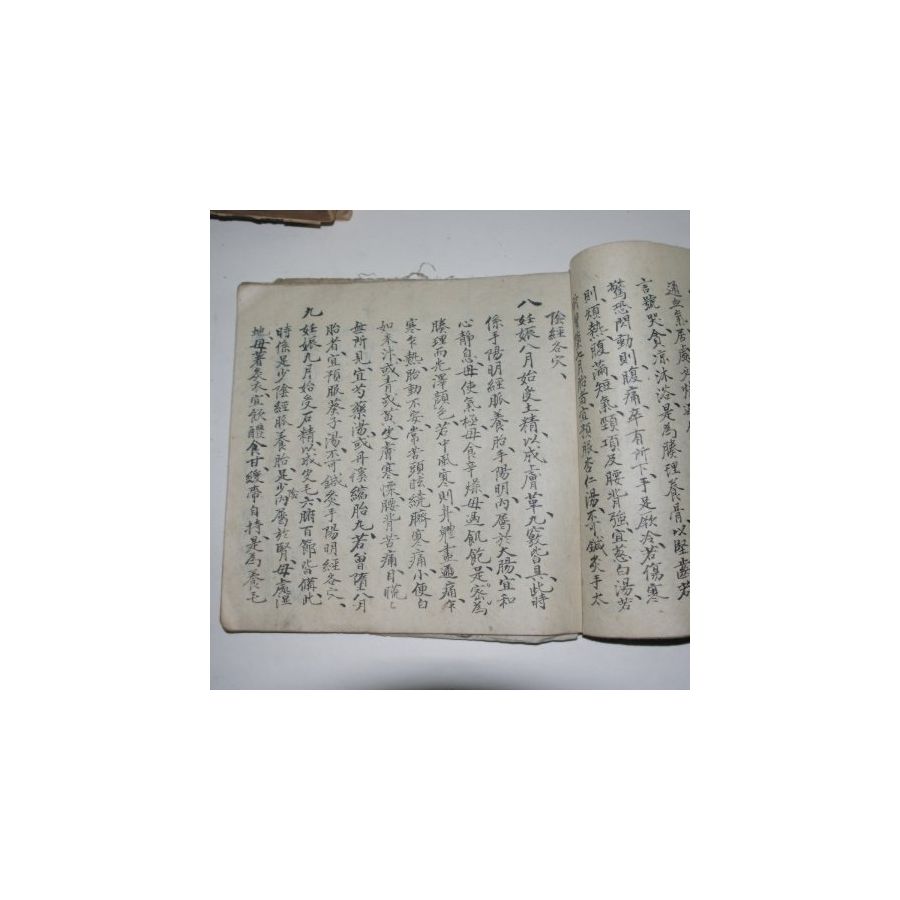 言號哭食凉沐浴是為腠理養骨以堅齒若
驚恐閃動則腹痛卒有所下手足厥冷若傷寒
則煩熱腹滿短氣頸項及腰背強宜葱白湯若
七月胎者宜預服杏仁湯不可鍼灸手太
陰經各穴
八 妊娠八月始受土精以成膚革九竅皆具此時
係手陽明經脈養胎手陽明內屬於大腸宜和
心靜息毋使氣極毋食辛燥毋過飢飽是密為
腠理而光澤顏色若中風寒則身體盡遍痛乍
寒乍熱胎動不安常苦頭眩繞臍寒痛小便白
如米汁或青或黃生膚寒慄腰背苦痛目䀮〻
無所見宜芍藥湯或丹溪縮胎丸若曾墮八月
胎者宜預服葵子湯不可鍼灸手陽明經各穴
九 妊娠九月始受石精以成皮毛六腑百節皆備此
時係足少陰經脈養胎足少陰內屬於腎毋處濕
地毋著炙衣宜飲醴食甘緩帶自持是為養毛